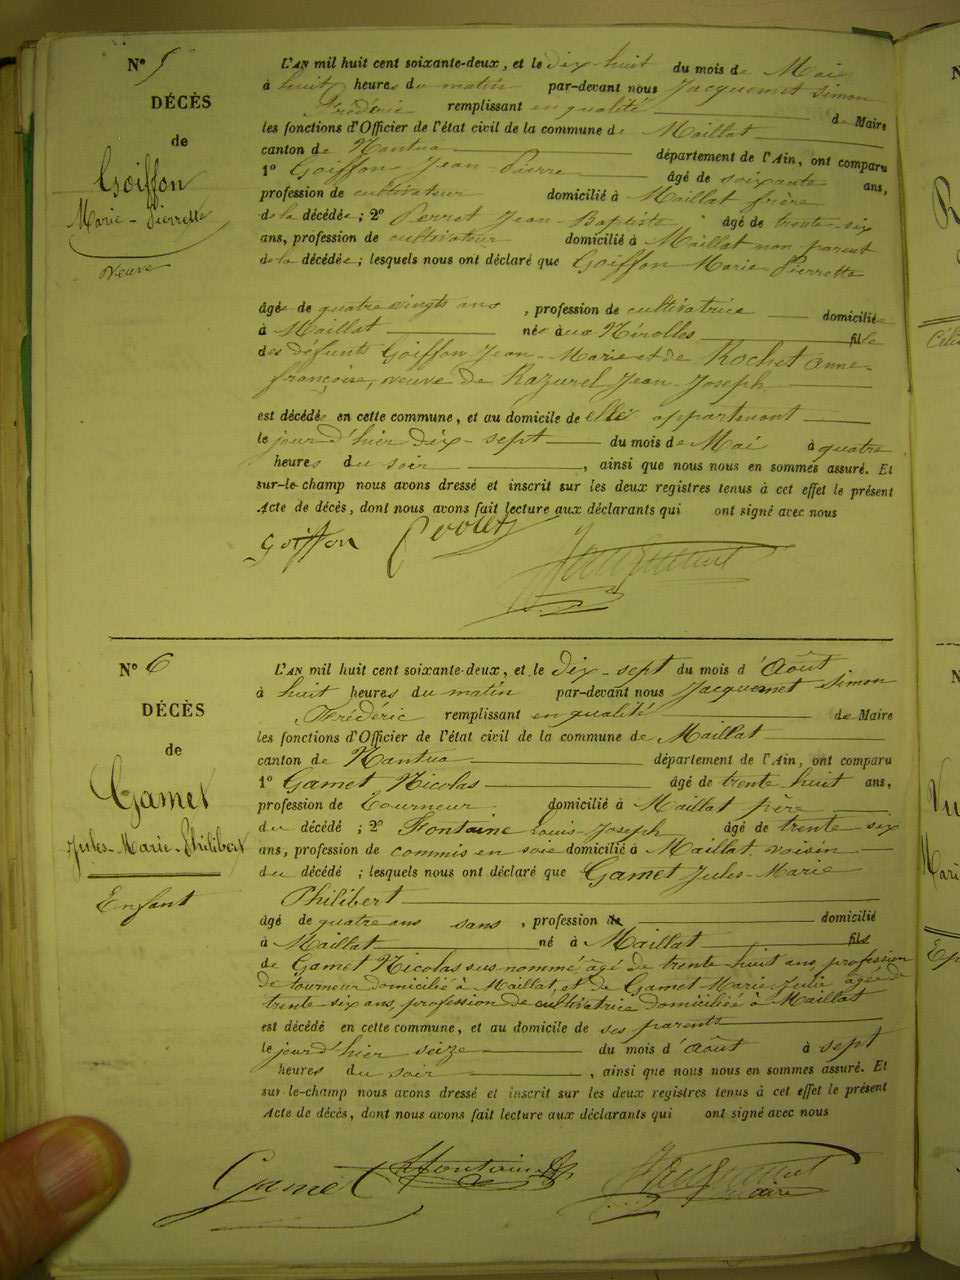 N° 5
DÉCÈS
de
Goiffon
Marie-Pierrette
Veuve
L'AN mil huit cent soixante-deux, et le dix-huit du mois de Mai
à huit heures du matin par-devant nous Jacquemet Simon
Frédéric remplissant en qualité de Maire
les fonctions d'Officier de l'état civil de la commune de Maillat
canton de Nantua département de l'Ain, ont comparu
1° Goiffon Jean-Pierre âgé de soixante ans,
profession de cultivateur domicilié à Maillat frère
de la décédée ; 2° Perret Jean-Baptiste âgé de trente-six
ans, profession de cultivateur domicilié à Maillat non parent
de la décédée ; lesquels nous ont déclaré que Goiffon Marie-Pierrette
âgée de quatre vingts ans , profession de cultivatrice domiciliée
à Maillat née aux Nérolles fille
des défunts Goiffon Jean-Marie et de Rochet Anne-
françoise, veuve de Razurel Jean-Joseph
est décédée en cette commune, et au domicile de elle appartenant
le jour d'hier dix-sept du mois de Mai à quatre
heures du soir , ainsi que nous nous en sommes assuré. Et
sur-le-champ nous avons dressé et inscrit sur les deux registres tenus à cet effet le présent
Acte de décès, dont nous avons fait lecture aux déclarants qui ont signé avec nous
Goiffon Jacquemet
N° 6
DÉCÈS
de
Gamet
Jules-Marie-Philibert
Enfant
L'AN mil huit cent soixante-deux, et le dix-sept du mois d'Août
à huit heures du matin par-devant nous Jacquemet Simon
Frédéric remplissant en qualité de Maire
les fonctions d'Officier de l'état civil de la commune de Maillat
canton de Nantua département de l'Ain, ont comparu
1° Gamet Nicolas âgé de trente huit ans,
profession de Tourneur domicilié à Maillat père
du décédé ; 2° Fontaine Louis-Joseph âgé de trente six
ans, profession de commis en soie domicilié à Maillat voisin
du décédé ; lesquels nous ont déclaré que Gamet Jules-Marie
Philibert
âgé de quatre ans sans , profession de domicilié
à Maillat né à Maillat fils
de Gamet Nicolas susnommé âgé de trente-huit ans, profession
de tourneur domicilié à Maillat, et de Gamet Marie Julie âgée de
trente-six ans, profession de cultivatrice domiciliée à Maillat
est décédé en cette commune, et au domicile de ses parents
le jour d'hier seize du mois d'Août à sept
heures du soir , ainsi que nous nous en sommes assuré. Et
sur-le-champ nous avons dressé et inscrit sur les deux registres tenus à cet effet le présent
Acte de décès, dont nous avons fait lecture aux déclarants qui ont signé avec nous
Gamet Fontaine Jacquemet
maire